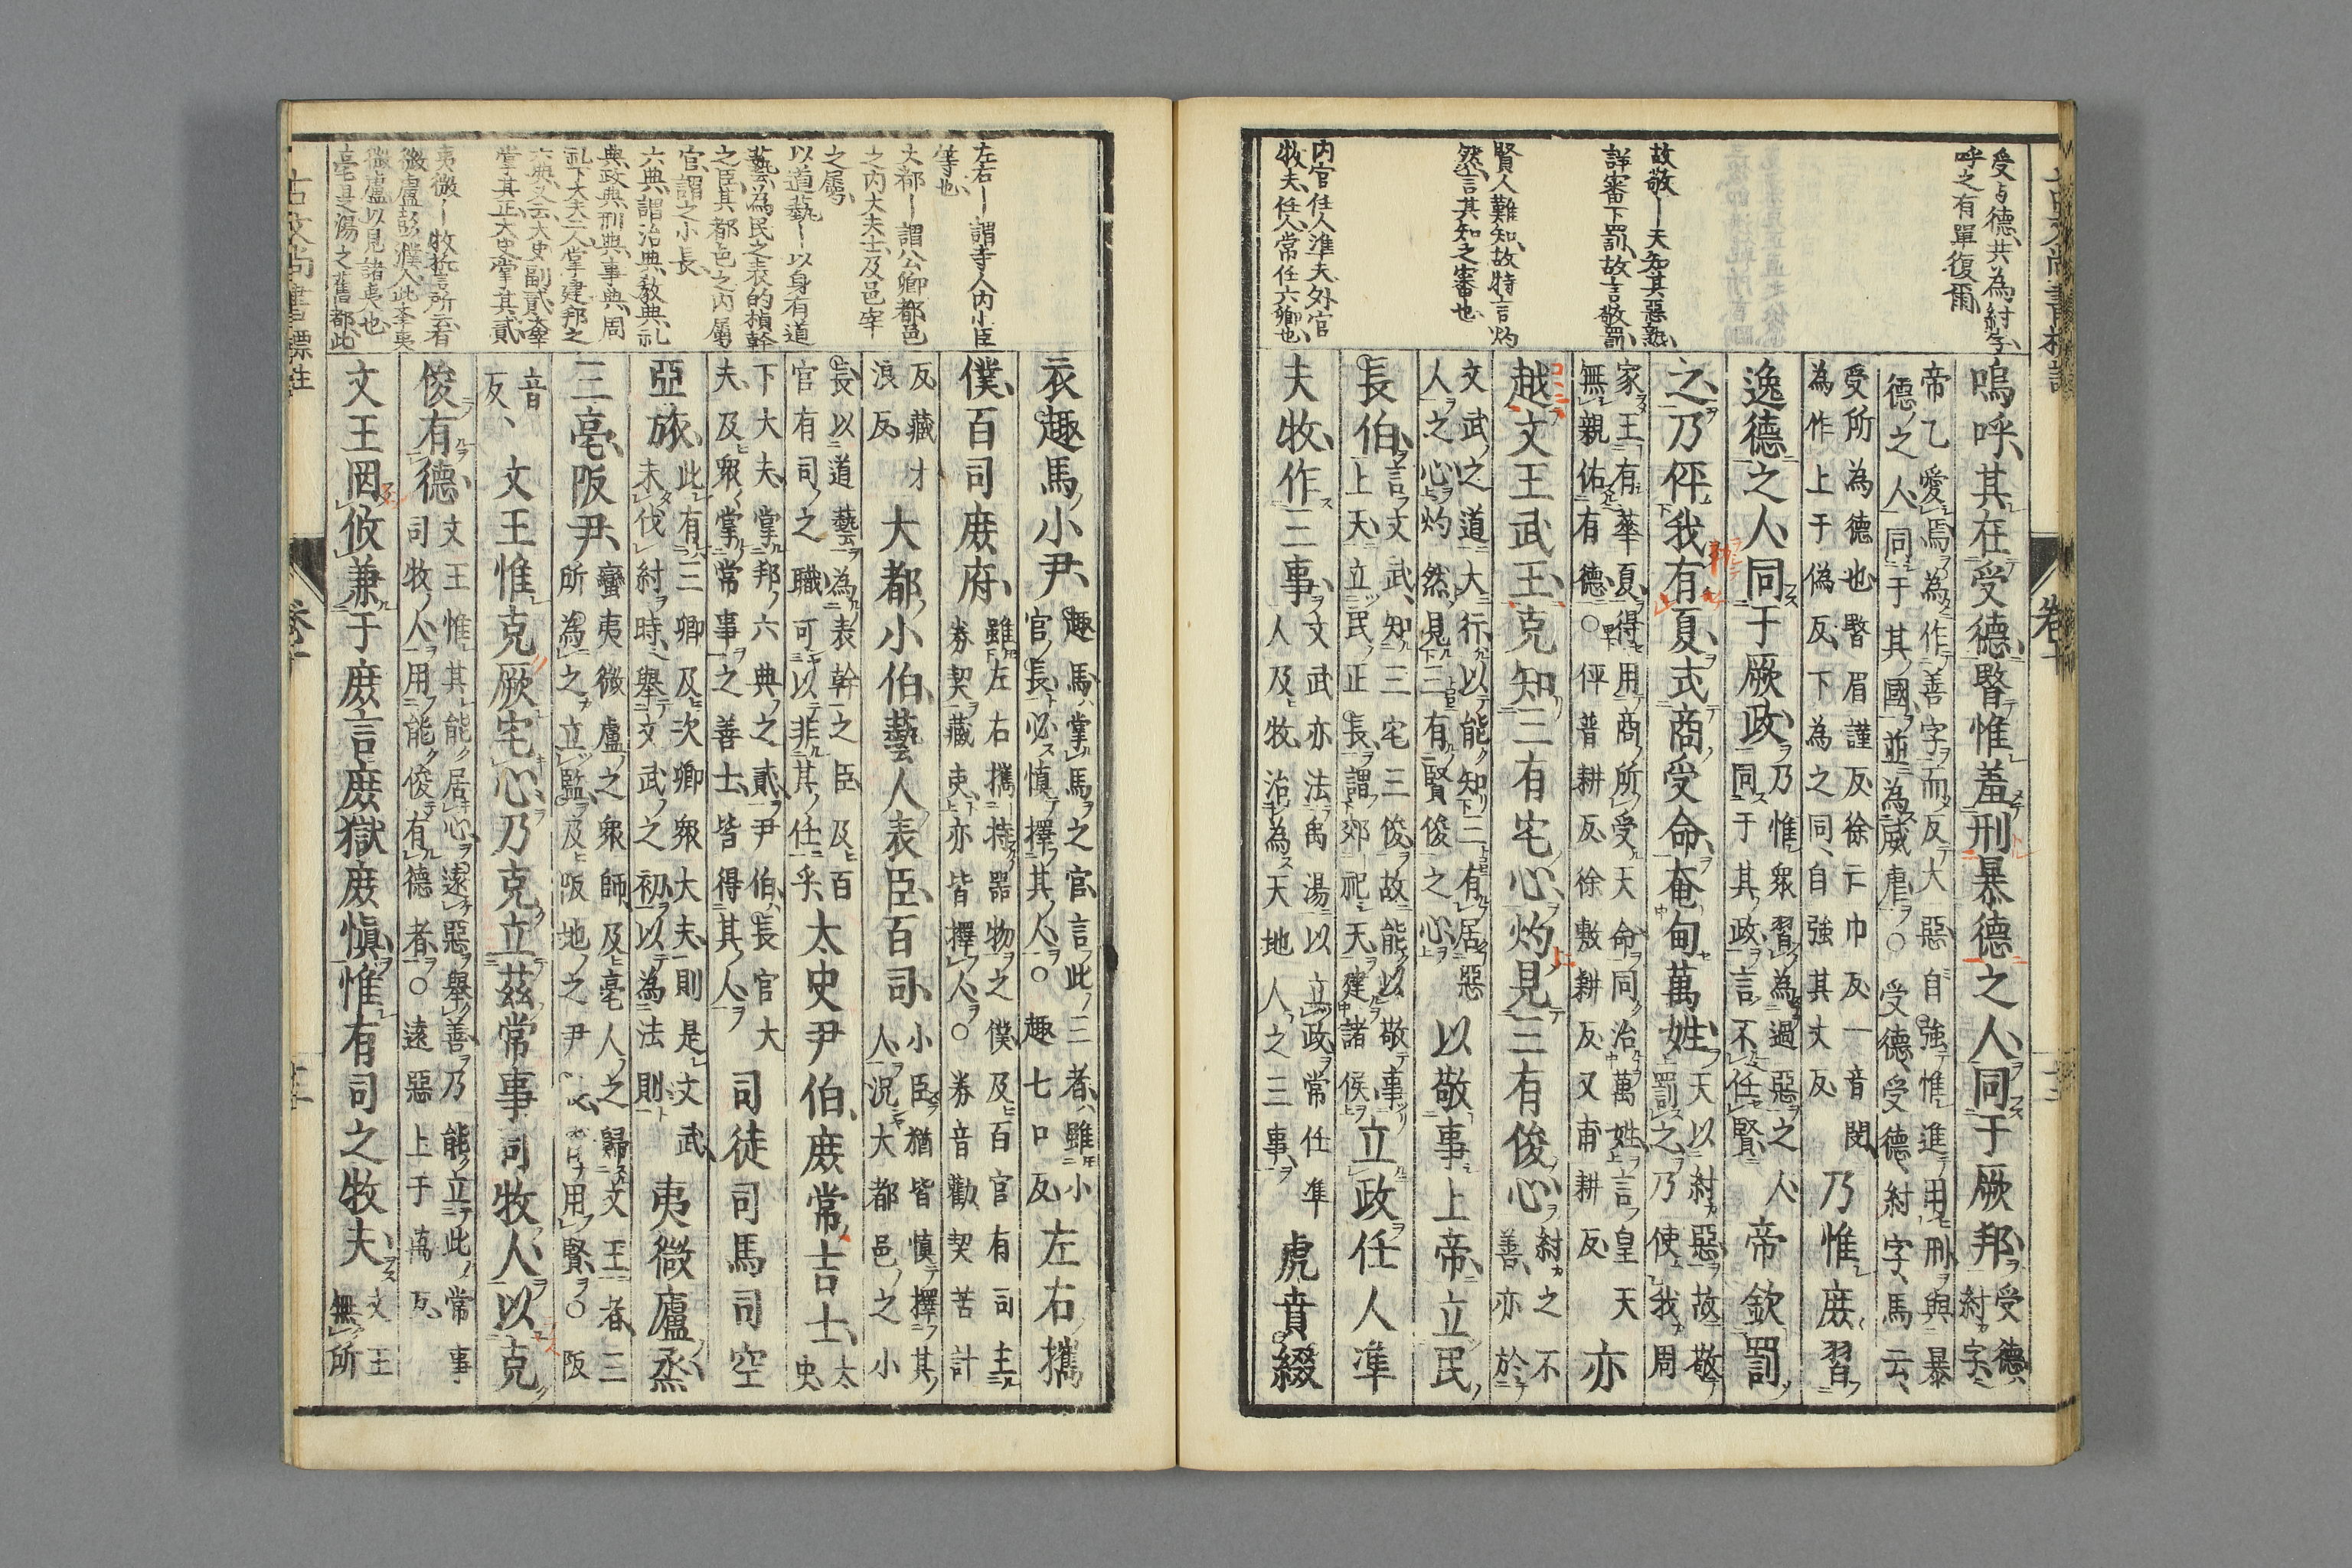 受与德、共為紂字、
呼之有單復爾、
故敬ー天知其惡熟、
詳審下罰、故言敬罰、
賢人難知、故特言灼
然、言其知之審也、
内官任人準夫、外官
牧夫、任人常任六卿也、
嗚呼、其在受德、暋惟羞刑暴德之人、同于厥邦、受德、
紂字、
帝乙愛焉、為作善字、而反大惡自強、惟進用刑、與暴
德之人、同于其國、並為威虐、○受德、受德、紂字、馬云、
受所為德也、暋眉謹反、徐亡巾反、一音閔、
為作上于偽反、下為之同、自強其丈反、
乃惟庶習
逸德之人、同于厥政、乃惟衆習為過惡之人、
同于其政、言不任賢、
帝欽罰
之、乃伻我有夏、式商受命、奄甸萬姓、天以紂惡、故敬
罰之、乃使我周
家王有華夏、得用商所受天命、同治萬姓、言皇天
無親、佑有德、○伻普耕反、徐敷耕反、又甫耕反、
亦
越文王武王、克知三有宅心、灼見三有俊心、紂之不
善、亦於
文武之道大行、以能知三有居惡
人之心、灼然見三有賢俊之心、
以敬事上帝、立民
長伯、言文武、知三宅三俊、故能以敬事
上天、立民正長、謂郊祀天、建諸侯、
立政、任人準
夫牧、作三事、文武亦法禹湯以立政、常任準
人及牧、治為天地人之三事、
虎賁綴
左右ー謂寺人内小臣
等也、
大都ー謂公卿都邑
之内大夫士、及邑宰
之屬、
以道藝ー以身有道
藝、為民之表的楨幹
之臣、其都邑之内屬
官、謂之小長、
六典、謂治典、教典、礼
典、政典、刑典、事典、周
礼下大夫二人、掌建邦之
六典、又云、大史副貳大宰
掌其正、大史掌其貳、
夷微ー牧誓言所云有
微盧彭濮人、此夲夷
微盧以見諸夷也、
亳是湯之舊都、此
衣、趣馬小尹、趣馬、掌馬之官、言此三者、雖小
官長、必慎擇其人、○趣七口反、
左右攜
僕、百司庶府、雖左右攜持器物之僕、及百官有司主
券契藏吏、亦皆擇人、○券音勸、契苦計
反、藏才
浪反、
大都小伯、藝人表臣百司、小臣猶皆慎擇其
人、況大都邑之小
長、以道藝為表幹之臣、及百
官有司之職、可以非其任乎、
太史尹伯、庶常吉士、太
史、
下大夫、掌邦六典之貳、尹伯、長官大
夫、及衆掌常事之善士、皆得其人、
司徒司馬司空
亞旅、此有三卿、及次卿衆大夫、則是文武
未伐紂時、舉文武之初、以為法則、
夷微盧烝
三亳阪尹、蠻夷微盧之衆師、及亳人之歸文王者、三
所為之立監、及阪地之尹
用賢、○阪
音
反、
文王惟克厥宅心、乃克立茲常事司牧人、以克
俊有德、文王惟其能居心、遠惡舉善、乃能立此常事
司牧人、用能俊有德者、○遠惡上于萬反、
文王罔攸兼于庶言、庶獄庶慎、惟有司之牧夫、文王
無所